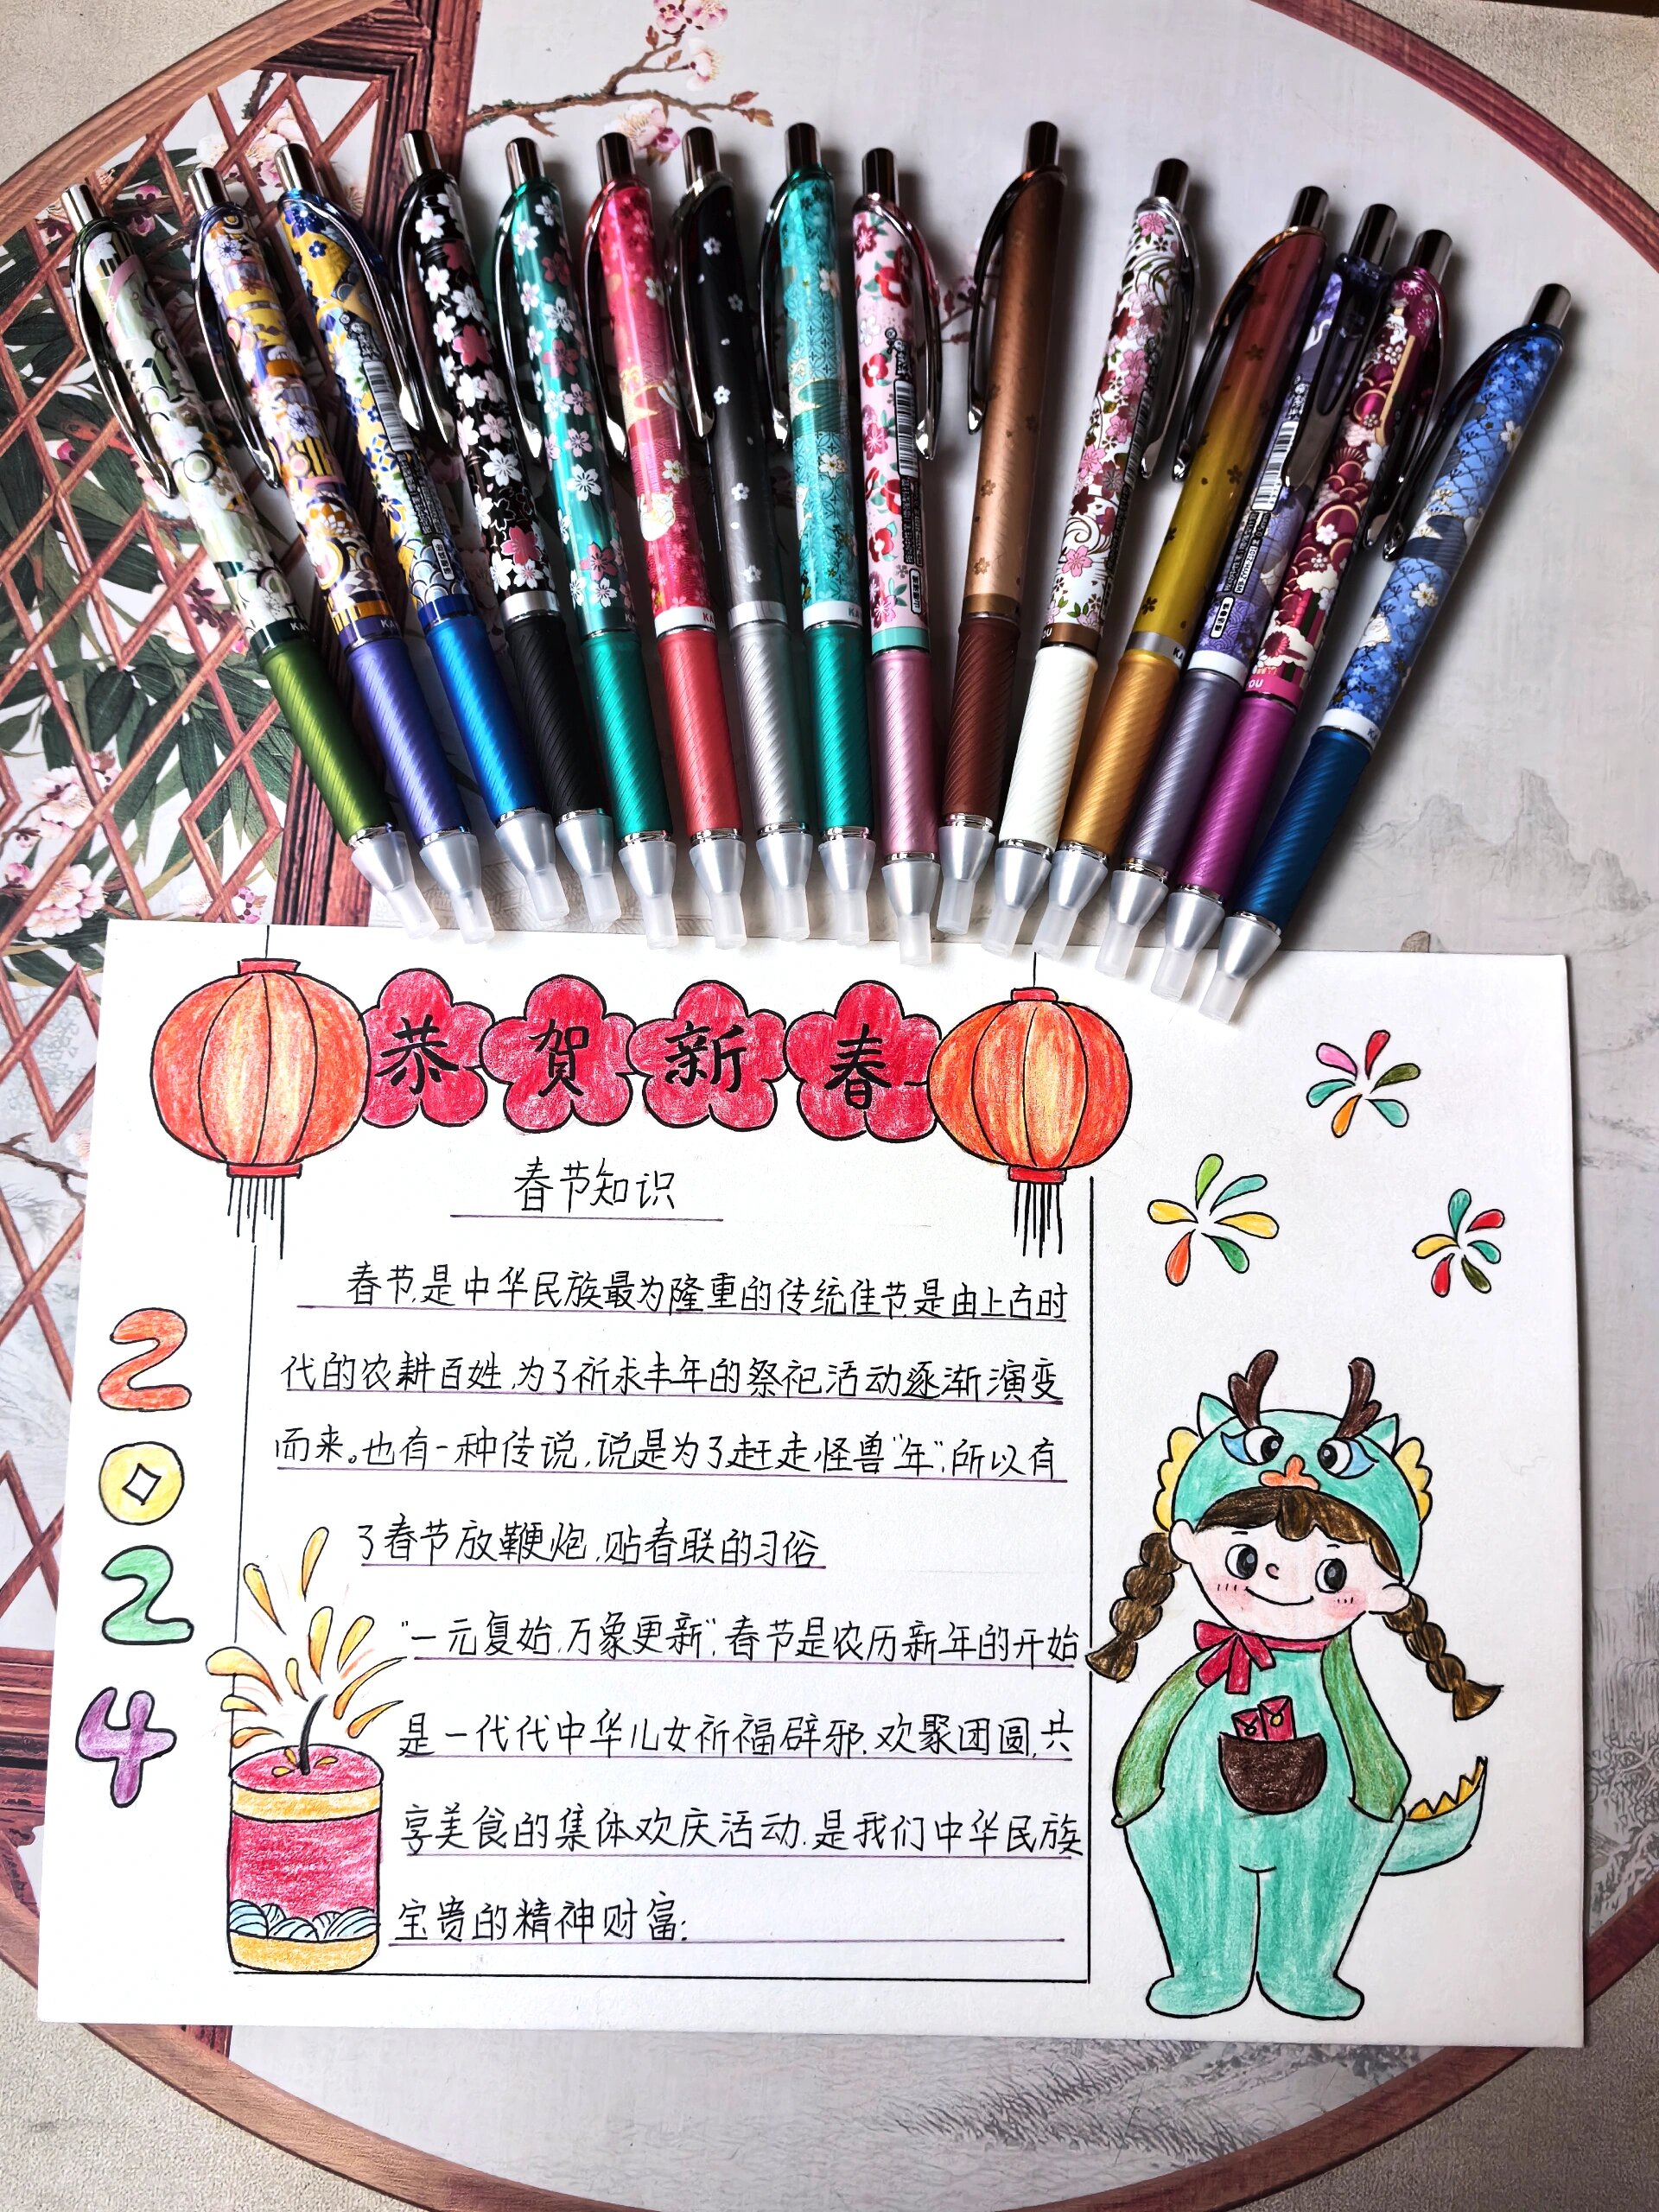 恭贺新春
春节知识
春节,是中华民族最为隆重的传统佳节,是由上古时
代的农耕百姓,为了祈求丰年的祭祀活动逐渐演变
而来。也有一种传说,说是为了赶走怪兽"年",所以有
了春节放鞭炮,贴春联的习俗
"一元复始,万象更新",春节是农历新年的开始
是一代代中华儿女祈福辟邪,欢聚团圆,共
享美食的集体欢庆活动.是我们中华民族
宝贵的精神财富;
2024